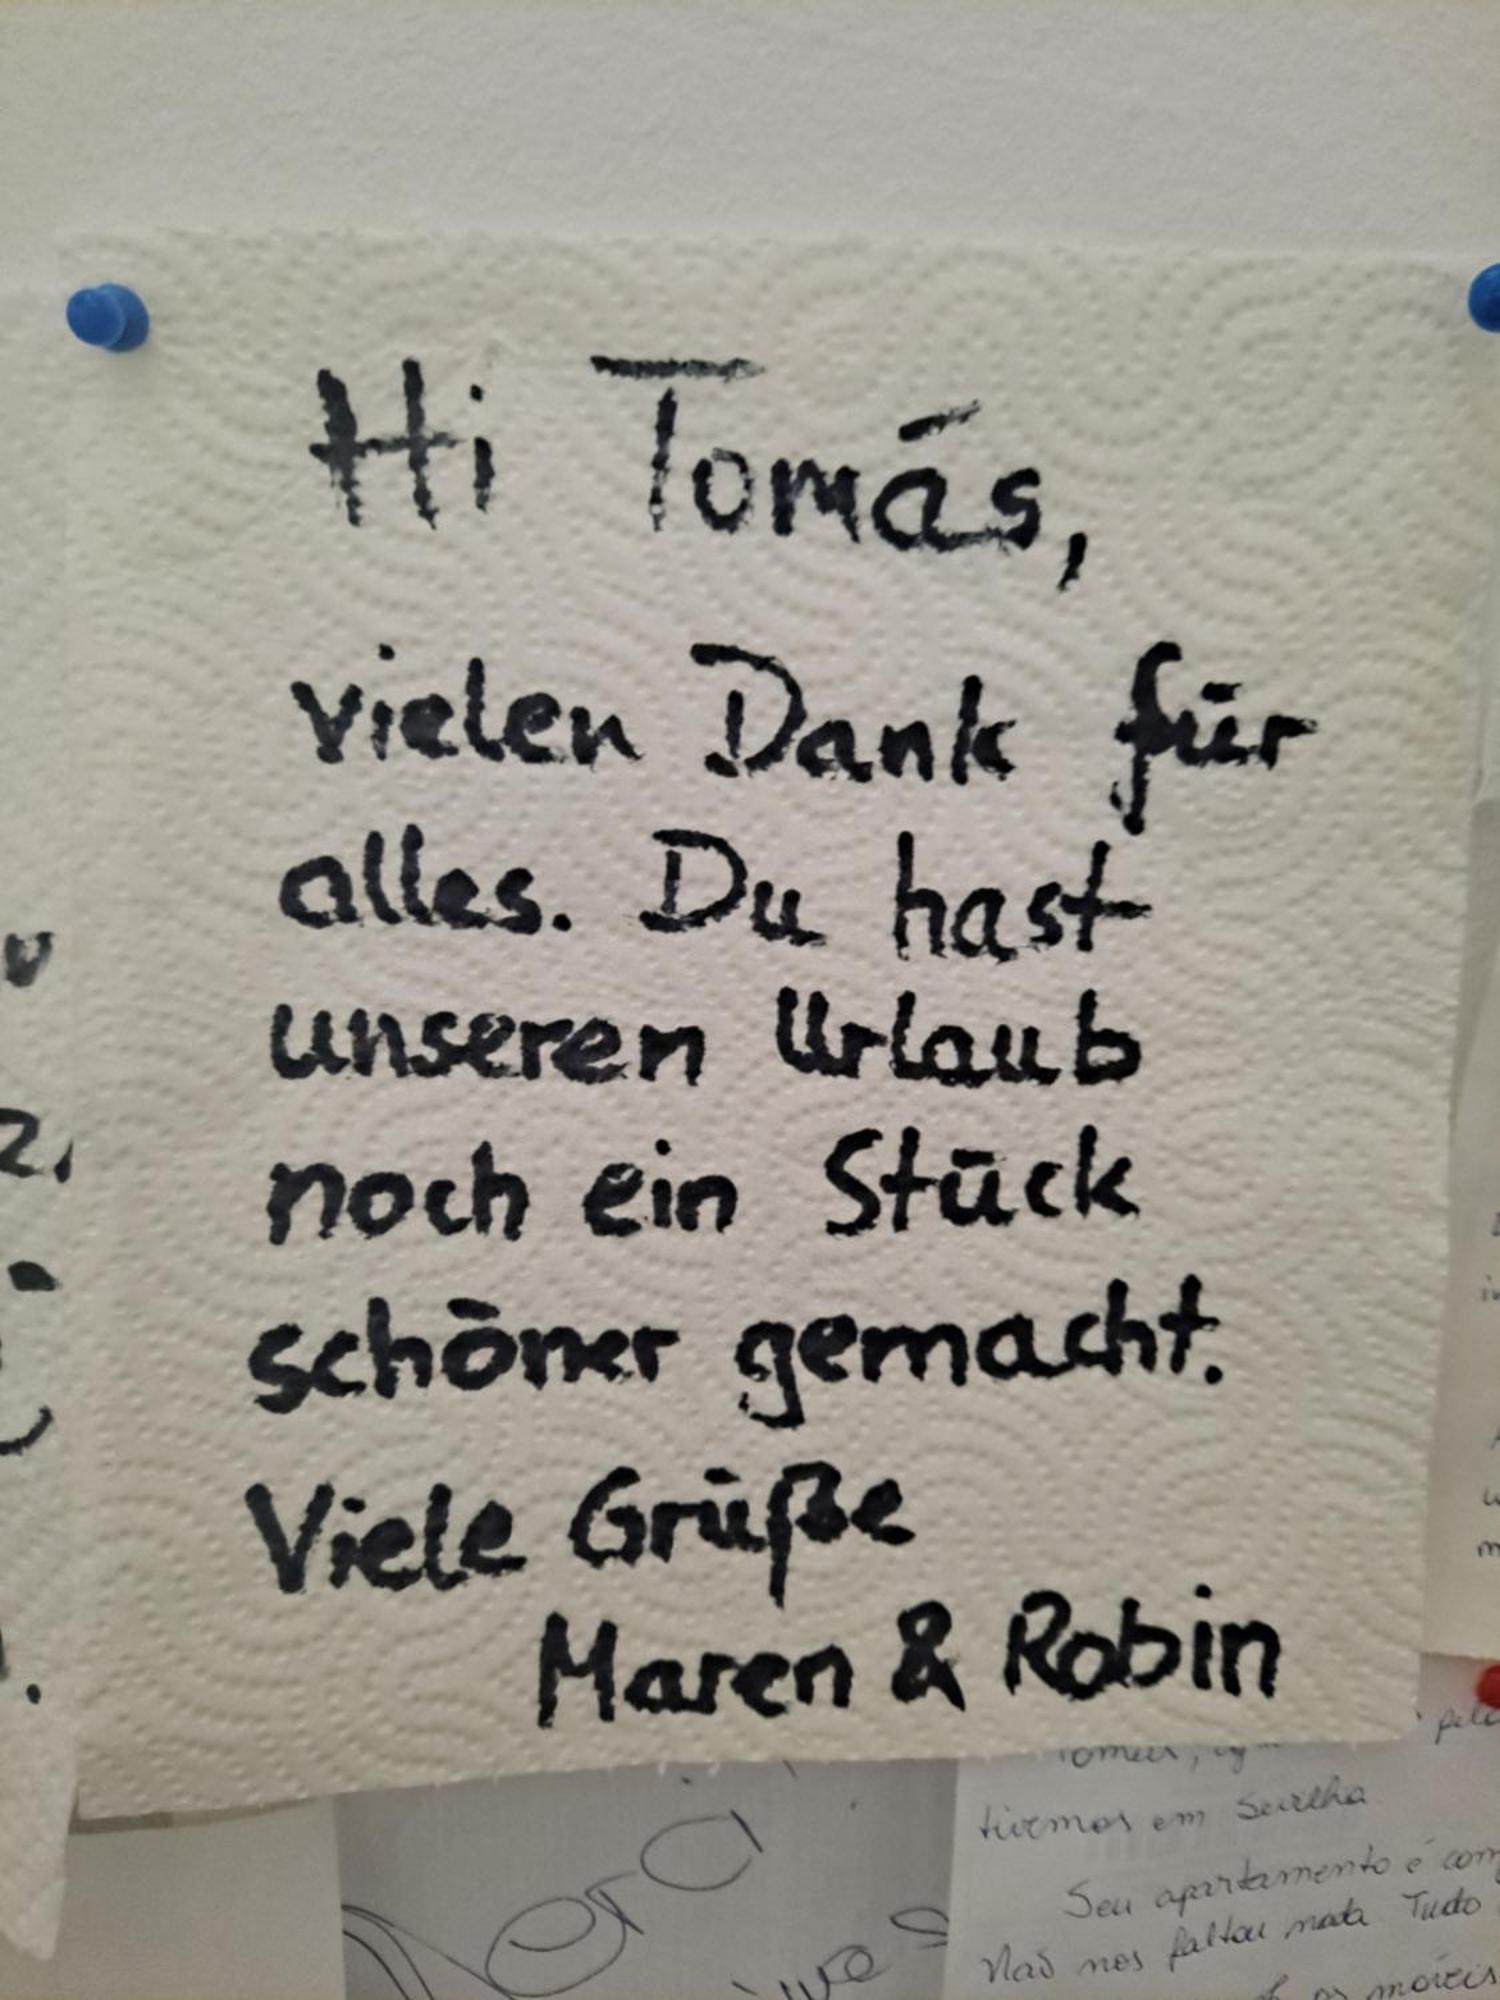 Hi Tomás,
vielen Dank für
alles. Du hast
unseren Urlaub
noch ein Stück
schöner gemacht.
Viele Grüße
Maren & Robin
tivemos em Sevilha
Seu apartamento é
Não nos faltou nada Tudo